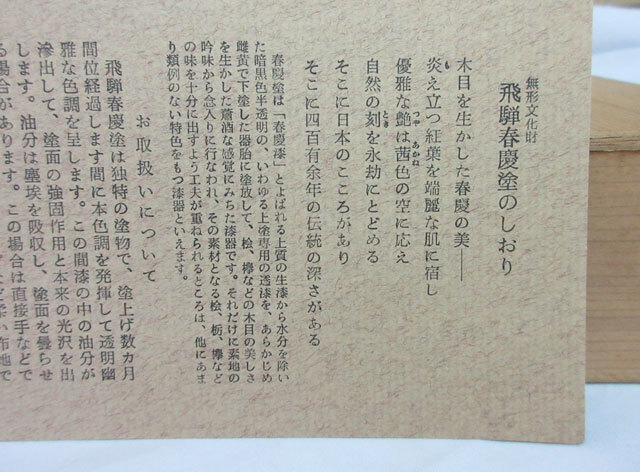 無形文化財
飛騨春慶塗のしおり
木目を生かした春慶の美――
炎え立つ紅葉を端麗な肌に宿し
優雅な艶は茜色の空に応え
自然の刻を永劫にとどめる
そこに日本のこころがあり
そこに四百有余年の伝統の深さがある
春慶塗は「春慶漆」とよばれる上質の生漆から水分を除い
た暗黒色半透明の、いわゆる上塗専用の透漆を、あらかじめ
雌黄で下塗した器胎に塗放して、桧、欅などの木目の美しさ
を生かした瀟洒な感覚にみちた漆器です。それだけに素地の
吟味から念入りに行なわれ、その素材となる桧、栃、欅など
の味を十分に出すよう工夫が重ねられるところは、他にあま
り類例のない特色をもつ漆器といえます。
お取扱いについて
飛騨春慶塗は独特の塗物で、塗上げ数カ月
間位経過します間に本色調を発揮して透明幽
雅な色調を呈します。この間漆の中の油分が
滲出して、塗面の強固作用と本来の光沢を出
します。油分は塵埃を吸収し、塗面を曇らせ
る場合があります。この場合は直接手などで